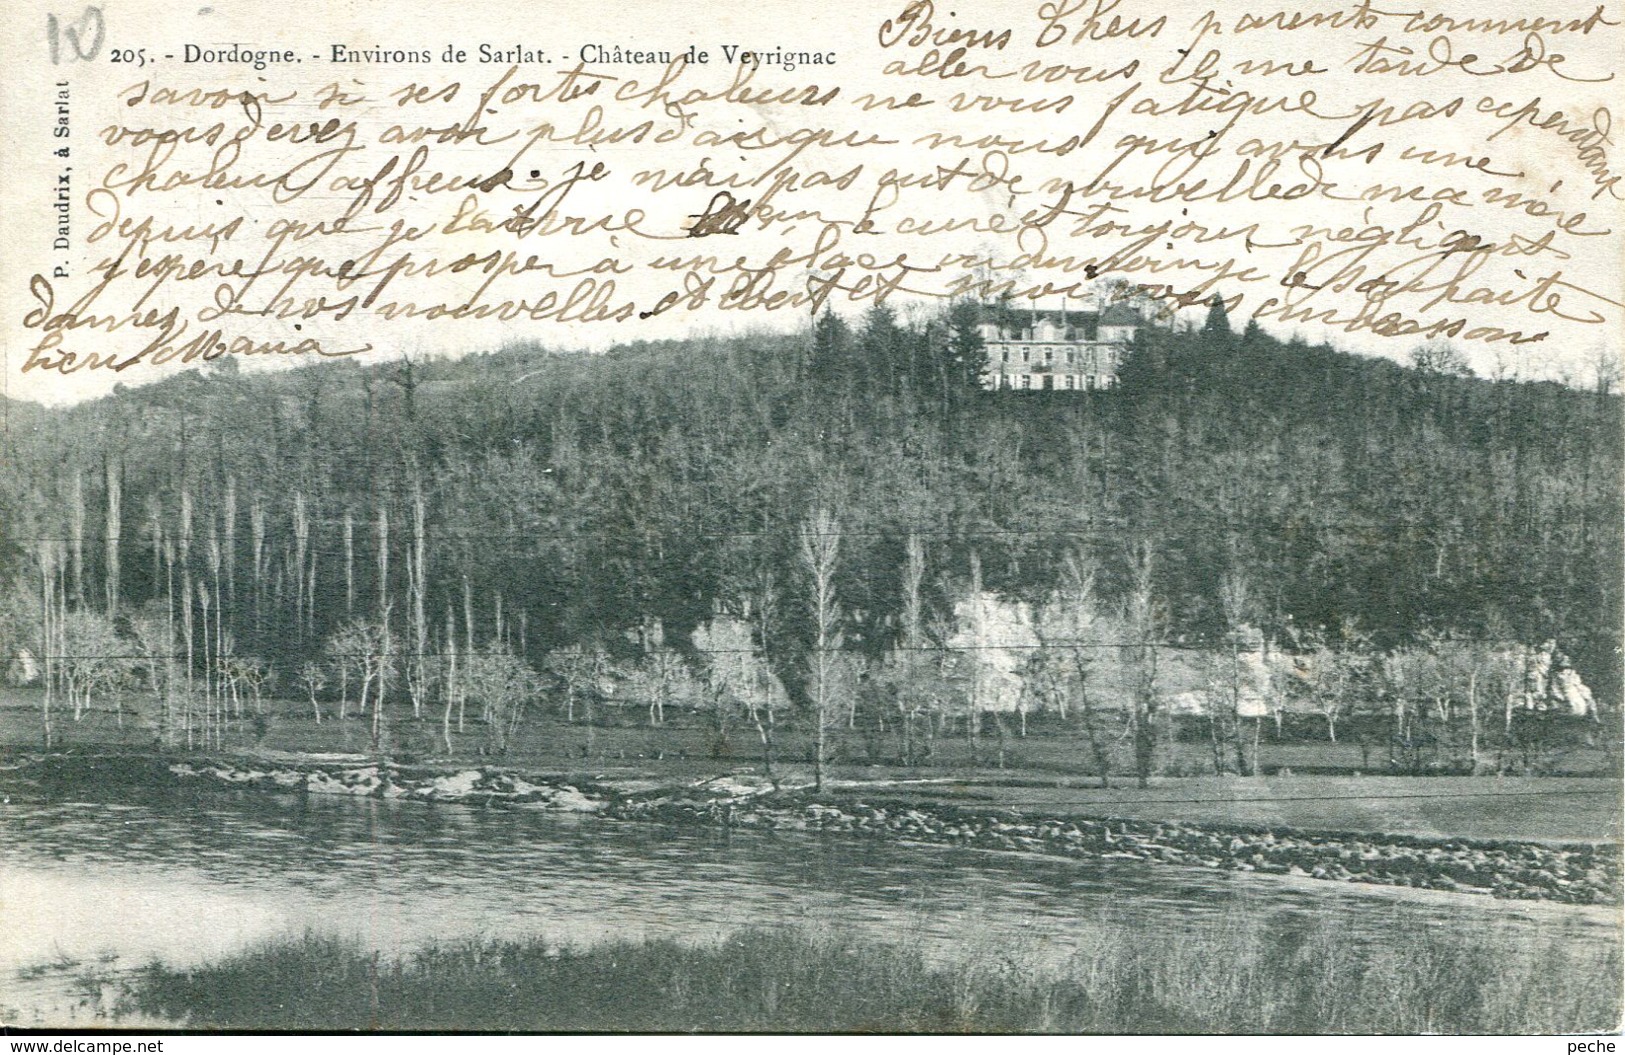 10
205. - Dordogne. - Environs de Sarlat. - Château de Veyrignac
P. Daudrix, à Sarlat
Biens Chers parents comment
aller vous il me tarde De
savoir si ses fortes chaleurs ne vous fatigue pas cependant
vous devez avoir plus d'air que nous qui avons une
chaleur affreuse. je n'ai pas eut de nouvelle de ma mère
depuis que je toujours négligent
j'espère que prosper à une place je le souhaite
donnez de vos nouvelles et moi vous embrassons
Maria
peche